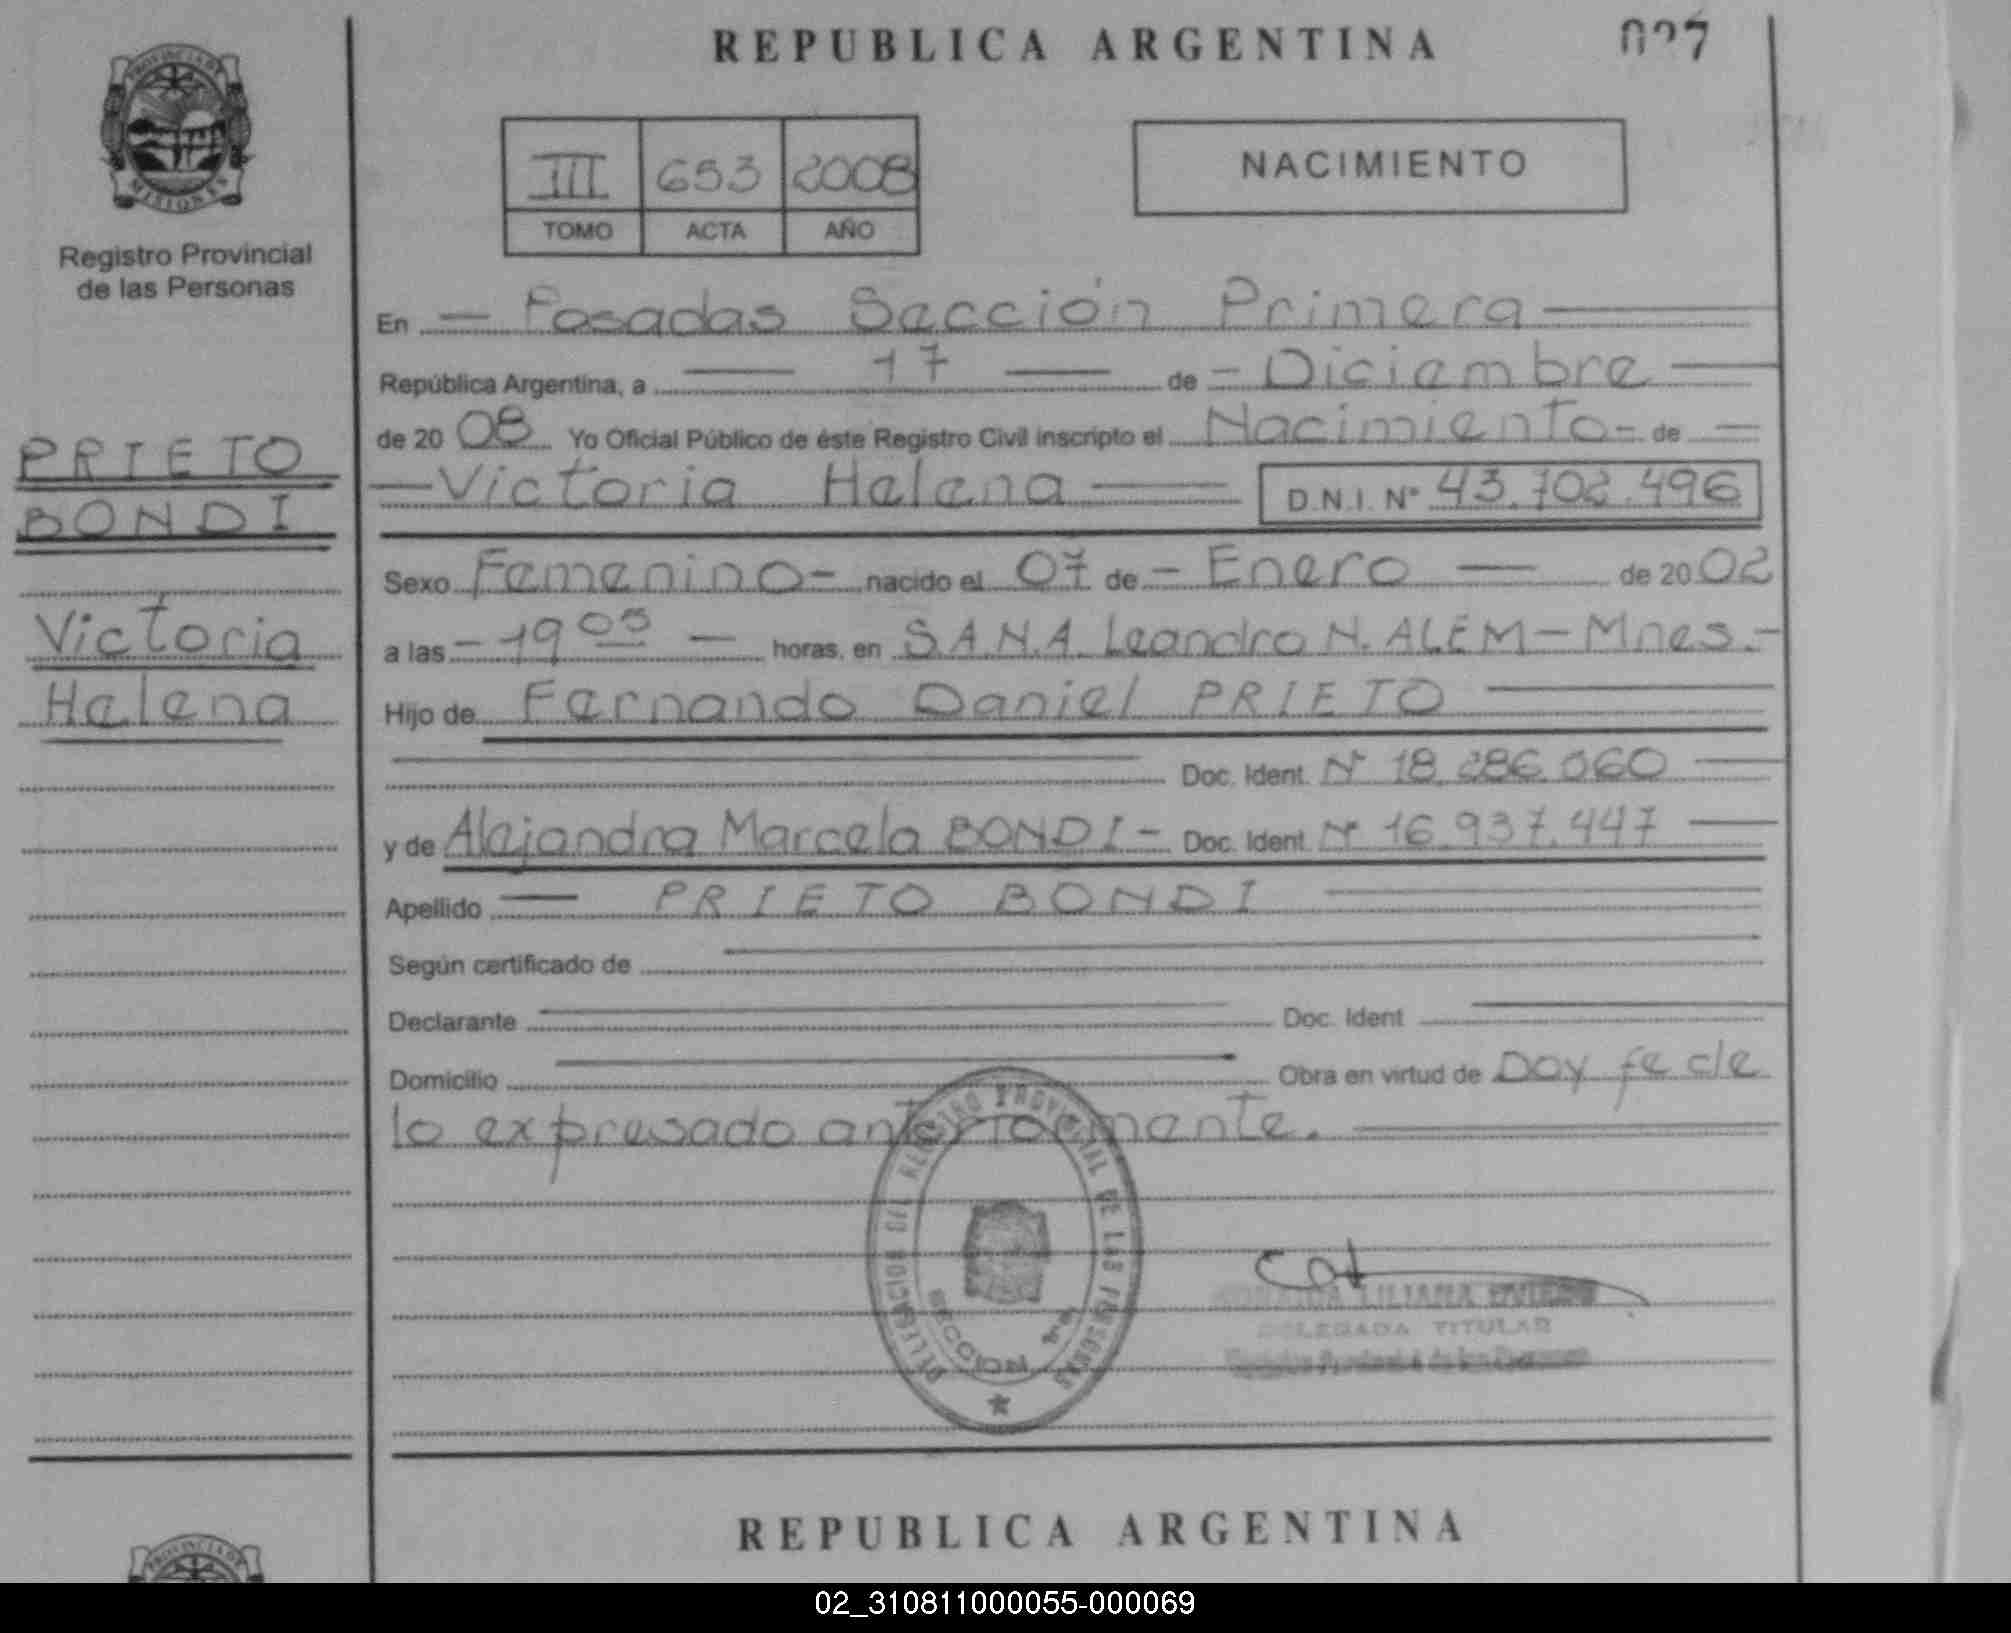 REPUBLICA ARGENTINA
027
PROVINCIA DE
MISIONES
Registro Provincial
de las Personas
III 653 2008
TOMO ACTA AÑO
NACIMIENTO
En — Posadas Sección Primera —
República Argentina, a — 17 — de - Diciembre —
de 20 08 Yo Oficial Público de éste Registro Civil inscripto el Nacimiento - de —
— Victoria Helena — D.N.I. Nº 43.702.496
PRIETO
BONDI
Victoria
Helena
Sexo Femenino - nacido el 07 de - Enero — de 20 02
a las - 19 05 — horas, en S.A.N.A. Leandro N. ALEM - Mnes. -
Hijo de Fernando Daniel PRIETO —
Doc. Ident. Nº 18.286.060 —
y de Alejandra Marcela BONDI - Doc. Ident. Nº 16.937.447 —
Apellido — PRIETO BONDI —
Según certificado de —
Declarante — Doc. Ident —
Domicilio — Obra en virtud de Doy fe de
lo expresado anteriormente. —
DELEGACION DEL REGISTRO PROVINCIAL DE LAS PERSONAS
SECCION 1ra
LILIANA
DELEGADA TITULAR
REPUBLICA ARGENTINA
PROVINCIA DE
02_310811000055-000069